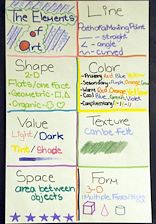 The Elements
of
Art
Line
Path of a Moving Point
- straight
- angle
- curved
Shape
2-D
Flat/one face
Geometric
Organic
Color
Primary Red Blue Yellow
Secondary Purple Orange Green
Warm Red Orange Yellow
Cool Blue Green Violet
Complimentary
Value
Light/Dark
Tint/Shade
Texture
Can be felt
Space
area between
objects
Form
3-D
Multiple Faces